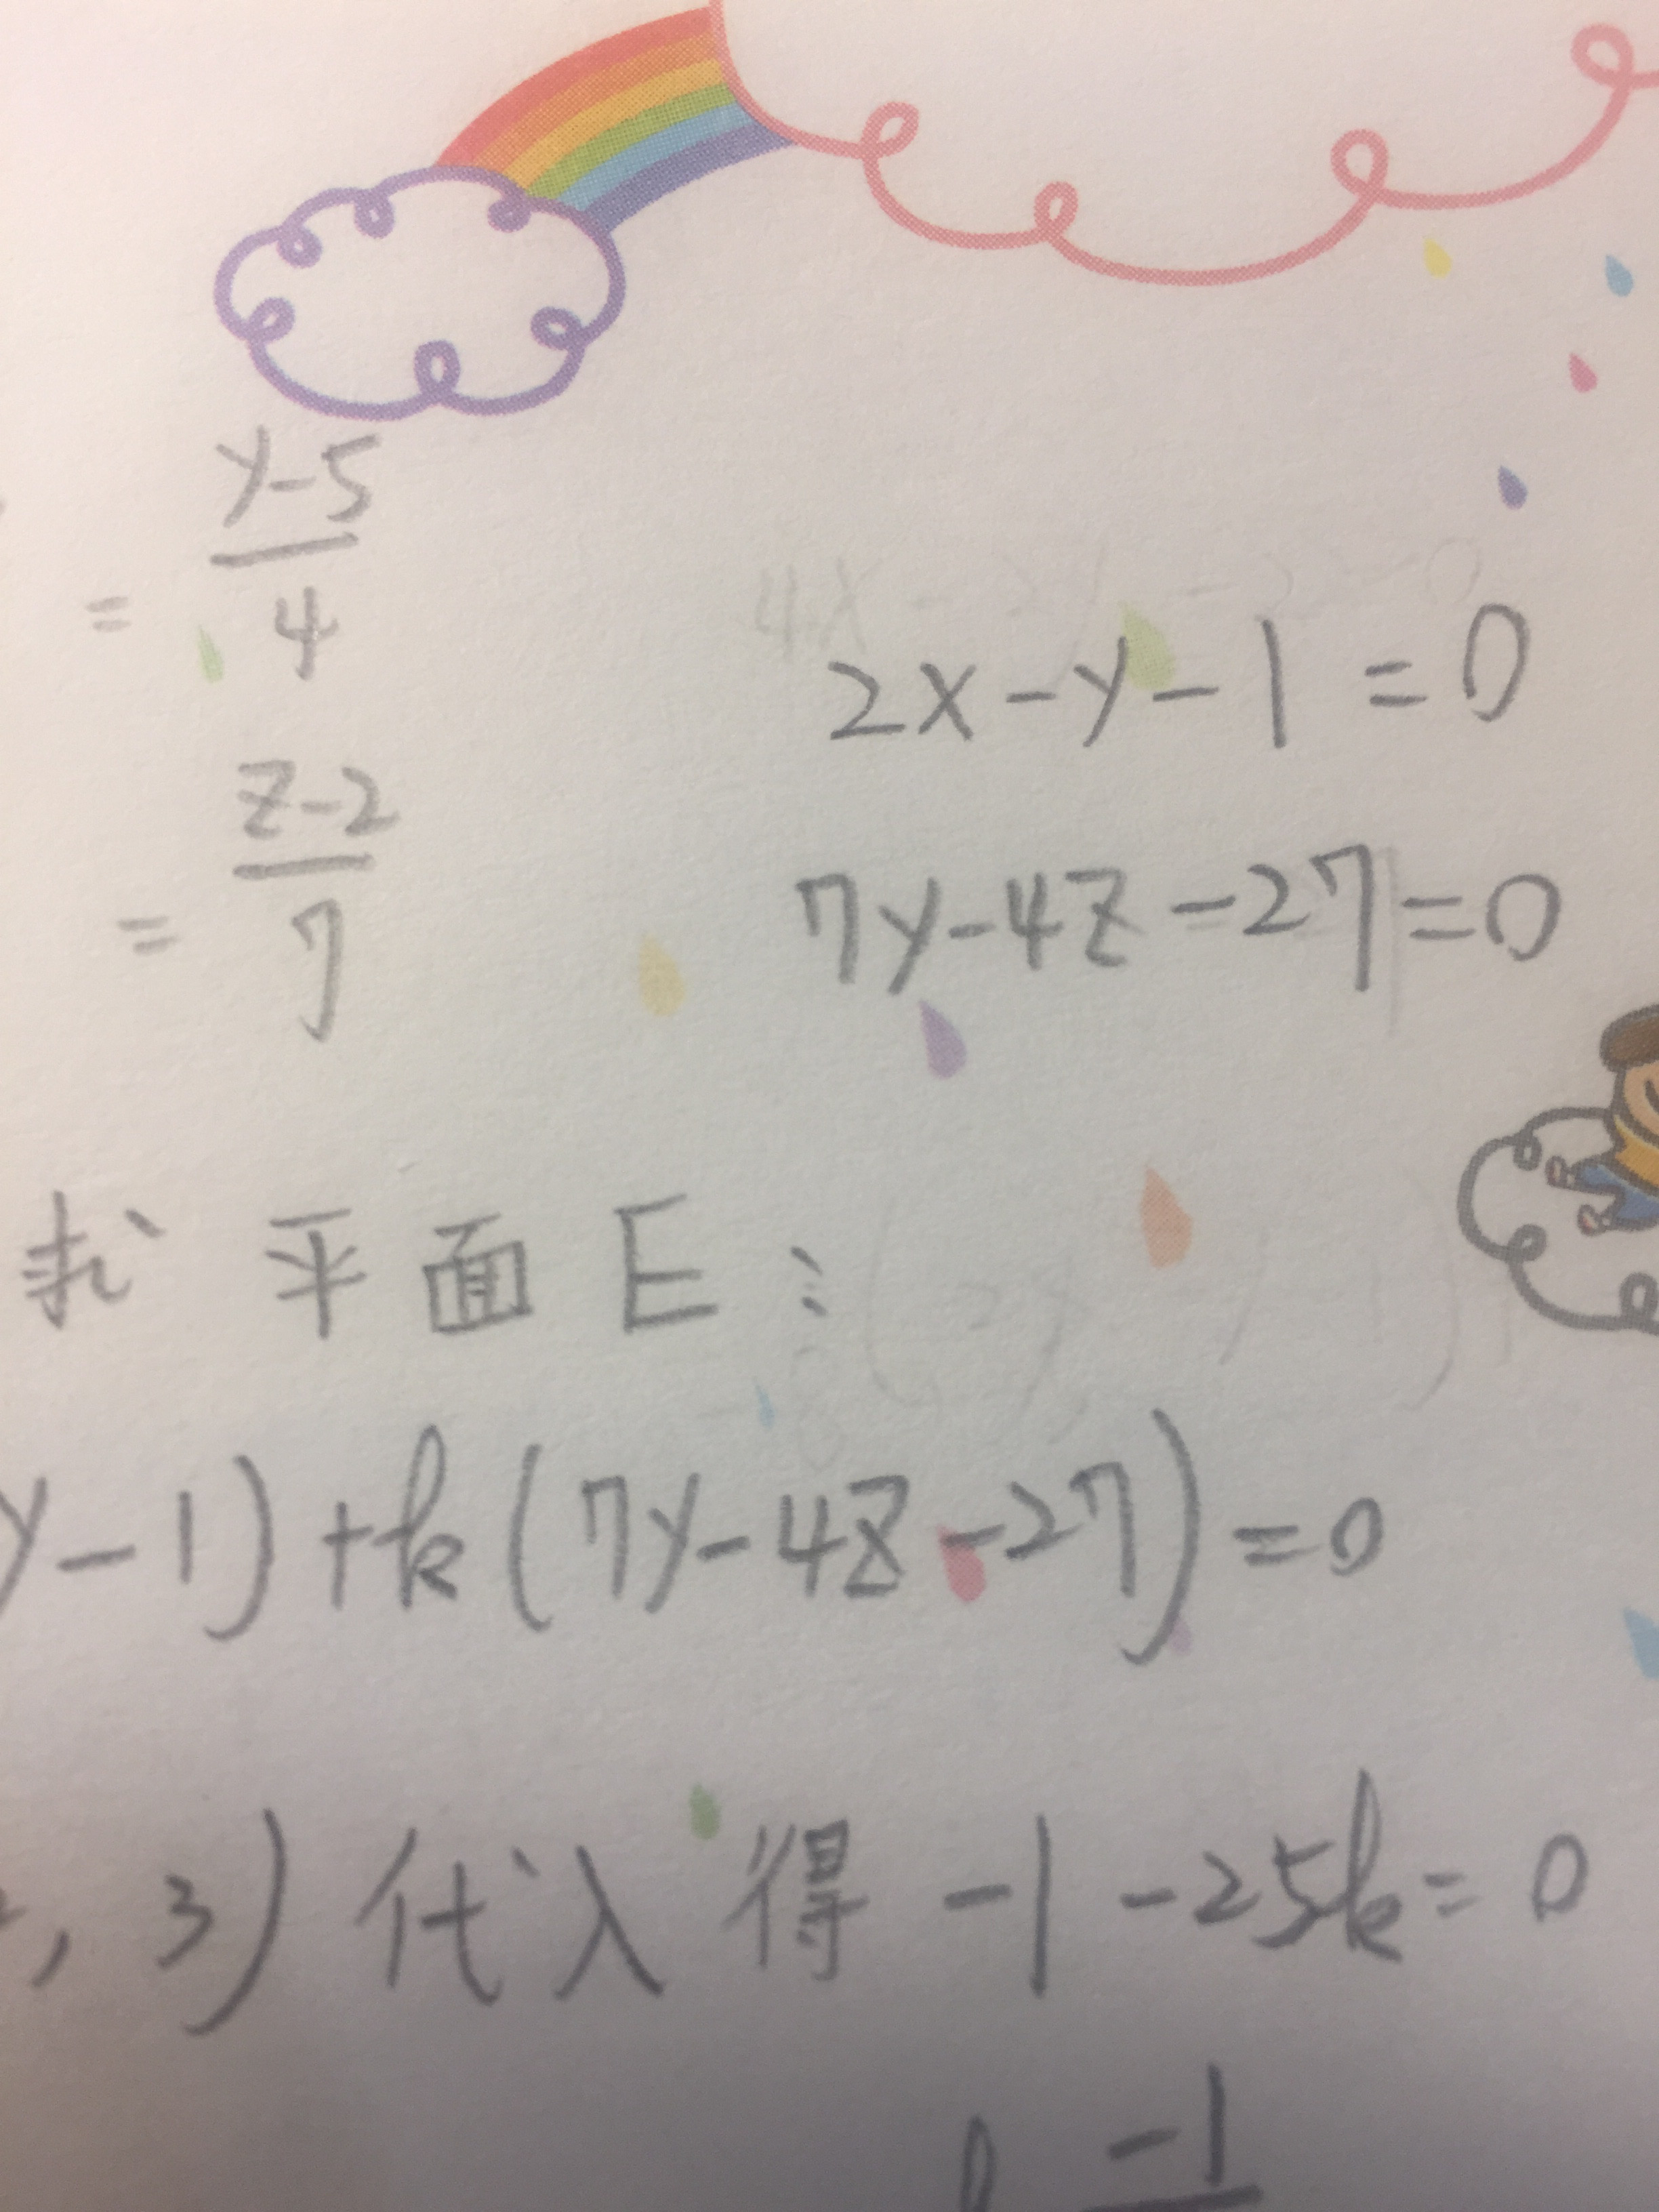 = y-5/4
2x-y-1=0
= z-2/7
7y-4z-27=0
求 平面 E:
y-1)+k(7y-4z-27)=0
, 3) 代入得 -1-25k=0
-1